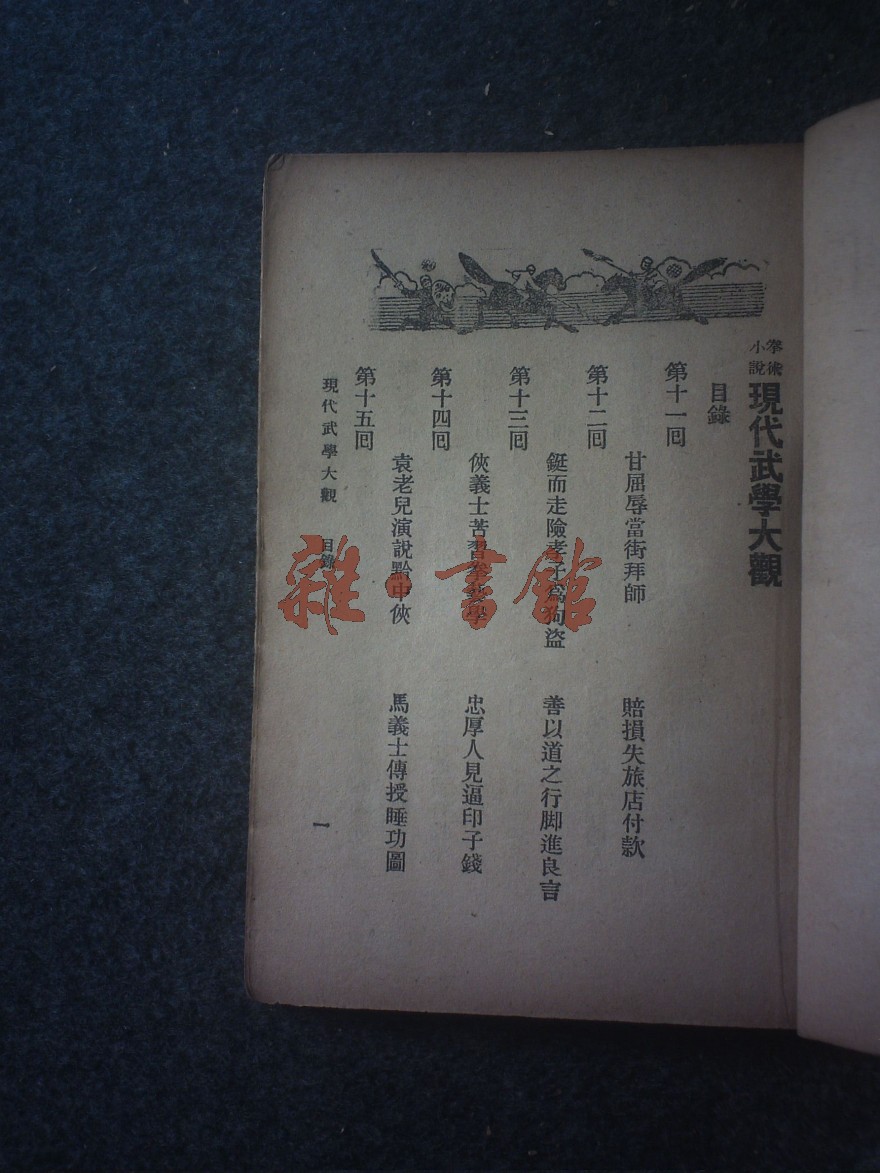 拳術小說
現代武學大觀
目錄
第十一回
甘屈辱當街拜師 賠損失旅店付款
第十二回
鋌而走險孝子爲狗盜 善以道之行脚進良言
第十三回
俠義士苦習拳藝學 忠厚人見逼印子錢
第十四回
袁老兒演說點中俠 馬義士傳授睡功圖
第十五回
現代武學大觀 目錄 一
雜·書館